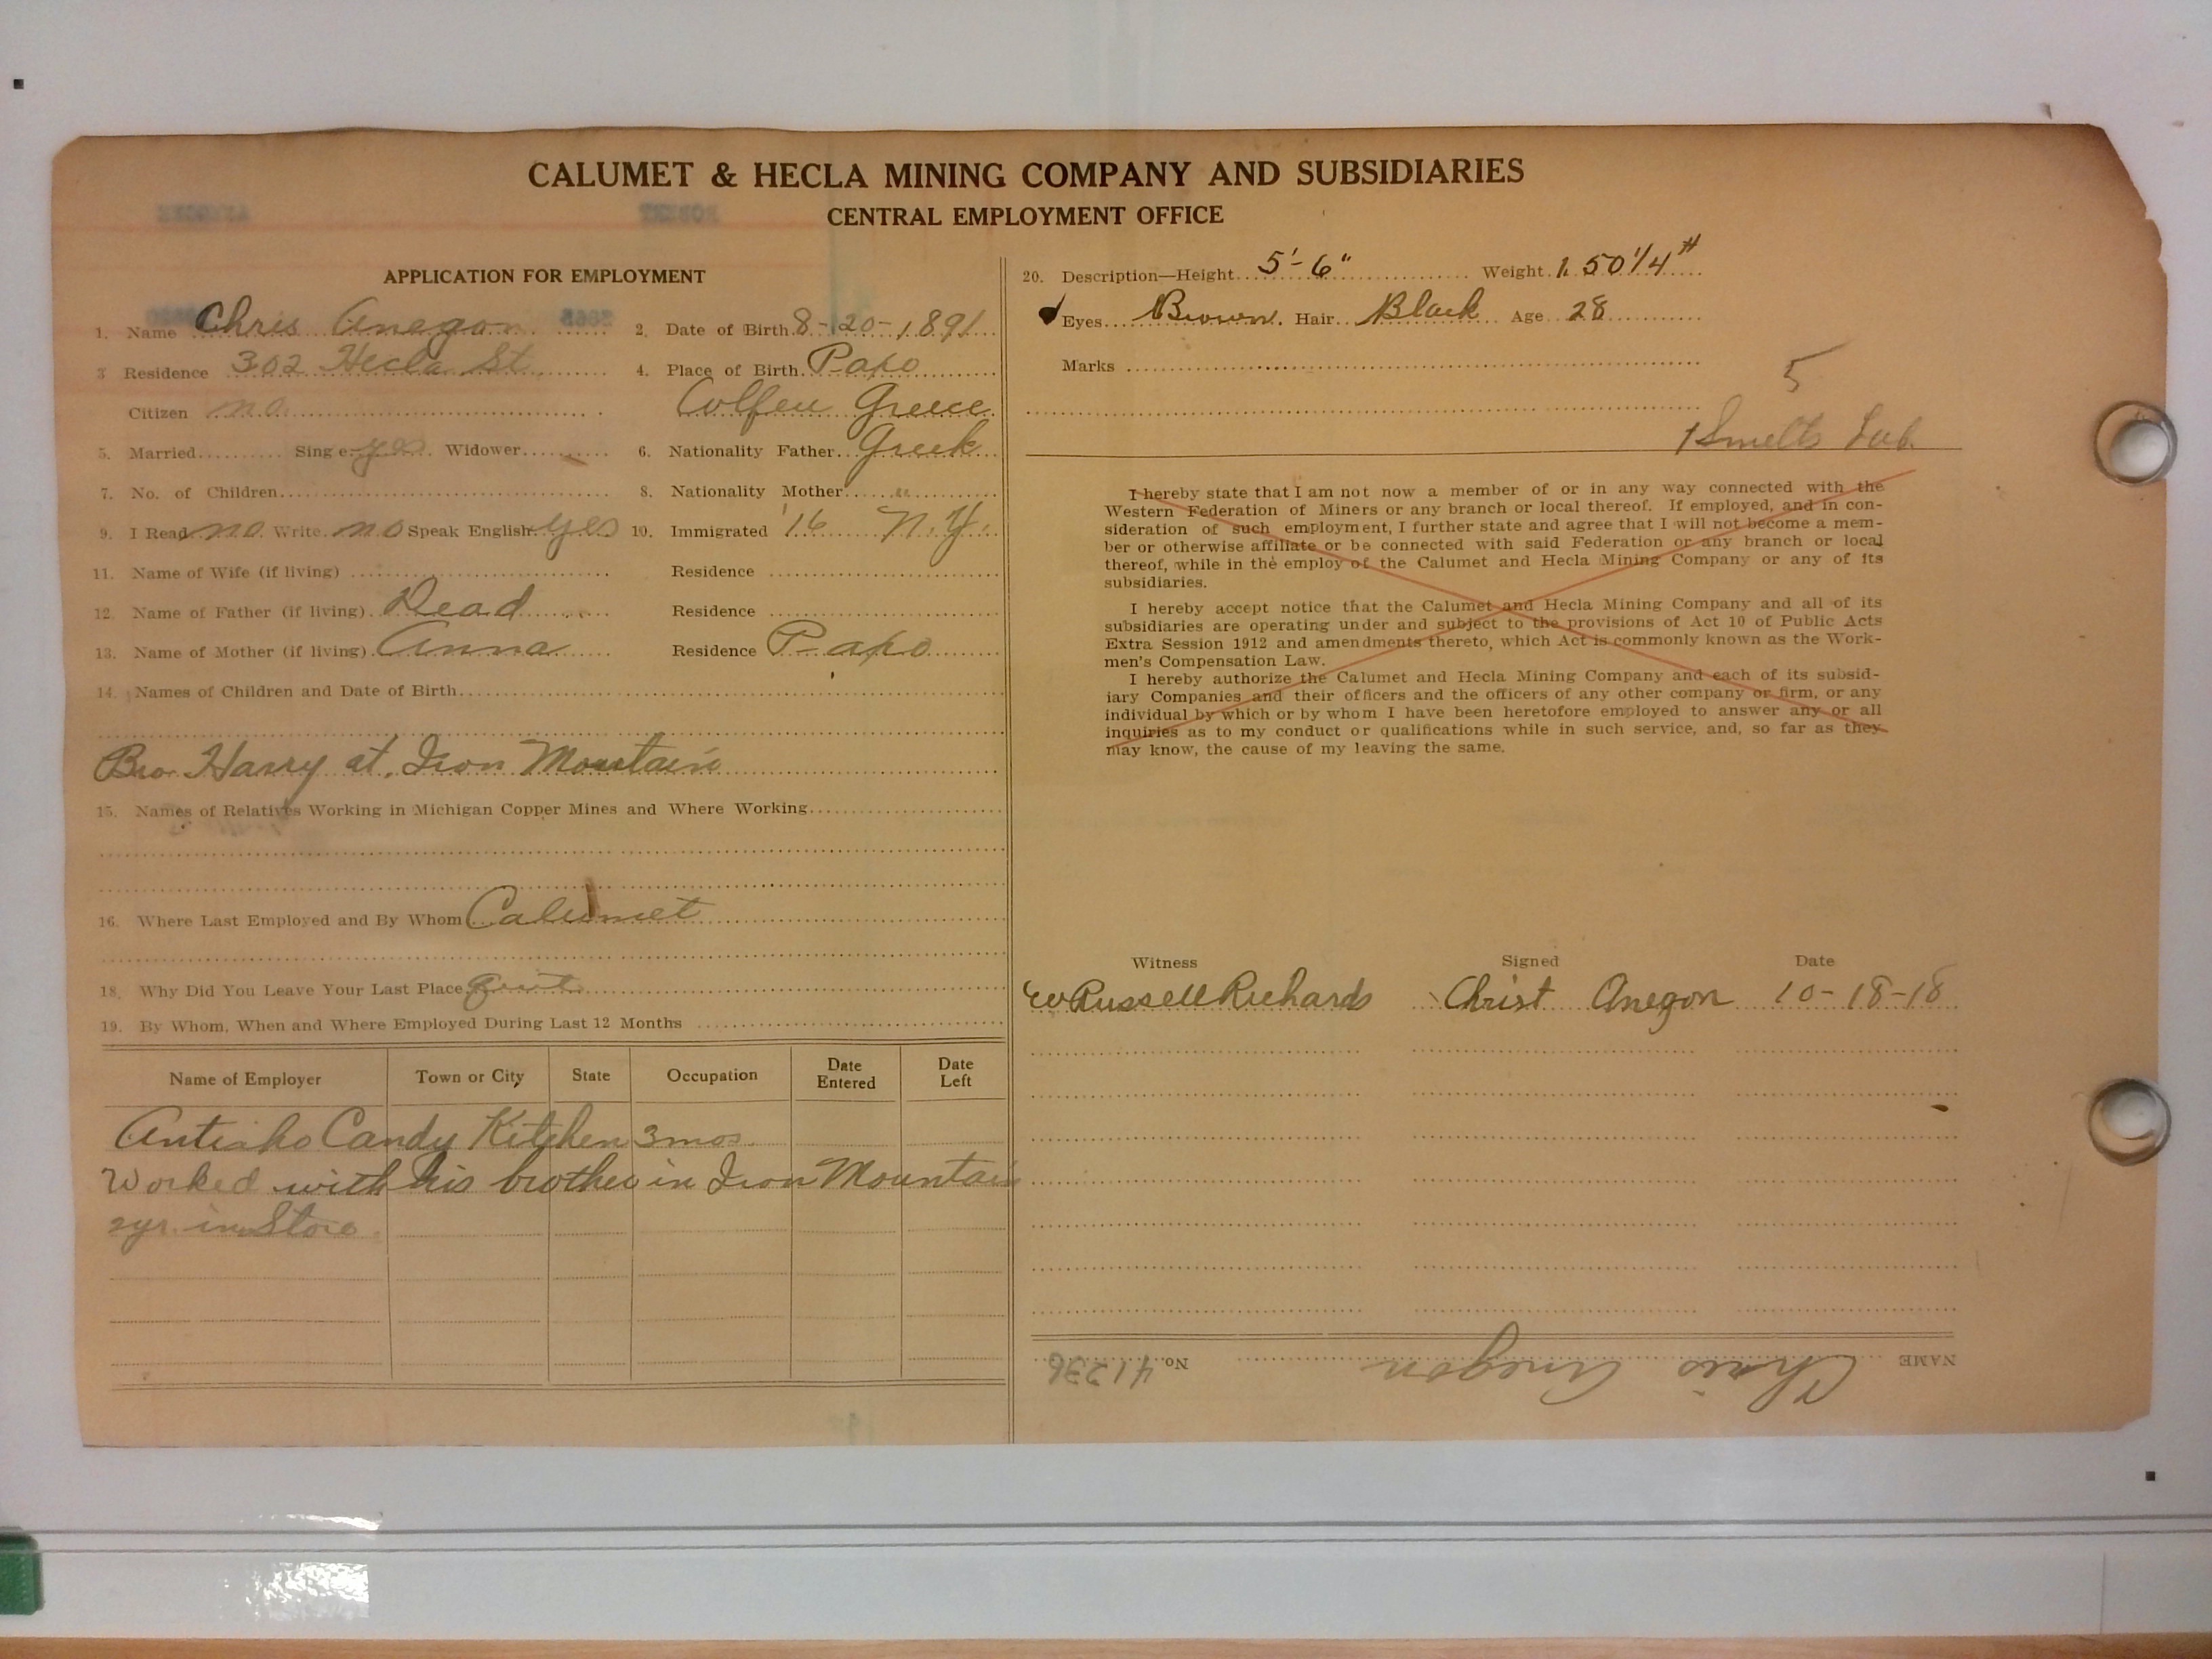 CALUMET & HECLA MINING COMPANY AND SUBSIDIARIES
CENTRAL EMPLOYMENT OFFICE
APPLICATION FOR EMPLOYMENT
1. Name Chris Anegon 2. Date of Birth 8-20-1891
3 Residence 302 Hecla St. 4. Place of Birth Papo
Citizen no Colfeu Greece
5. Married Sing e yes Widower 6. Nationality Father Greek
7. No. of Children 8. Nationality Mother "
9. I Read no Write no Speak English yes 10. Immigrated '16 N.Y.
11. Name of Wife (if living) Residence
12. Name of Father (if living) Dead Residence
13. Name of Mother (if living) Anna Residence Papo
14. Names of Children and Date of Birth
Bro Harry at Iron Mountain
15. Names of Relatives Working in Michigan Copper Mines and Where Working
16. Where Last Employed and By Whom Calumet
18. Why Did You Leave Your Last Place Quit
19. By Whom, When and Where Employed During Last 12 Months
Name of Employer Town or City State Occupation Date Entered Date Left
Candy Kitchen 3 mos.
Worked with his brother in Iron Mountain
2yr. in Store
20. Description—Height 5'-6" Weight 150 1/4 #
Eyes Brown Hair Black Age 28
Marks
5
1 Smelts Lab.
I hereby state that I am not now a member of or in any way connected with the
Western Federation of Miners or any branch or local thereof. If employed, and in con-
sideration of such employment, I further state and agree that I will not become a mem-
ber or otherwise affiliate or be connected with said Federation or any branch or local
thereof, while in the employ of the Calumet and Hecla Mining Company or any of its
subsidiaries.
I hereby accept notice that the Calumet and Hecla Mining Company and all of its
subsidiaries are operating under and subject to the provisions of Act 10 of Public Acts
Extra Session 1912 and amendments thereto, which Act is commonly known as the Work-
men's Compensation Law.
I hereby authorize the Calumet and Hecla Mining Company and each of its subsid-
iary Companies and their officers and the officers of any other company or firm, or any
individual by which or by whom I have been heretofore employed to answer any or all
inquiries as to my conduct or qualifications while in such service, and, so far as they
may know, the cause of my leaving the same.
Witness Signed Date
W Russell Richards Christ Anegon 10-18-18
NAME Chris Anegon No. 41236